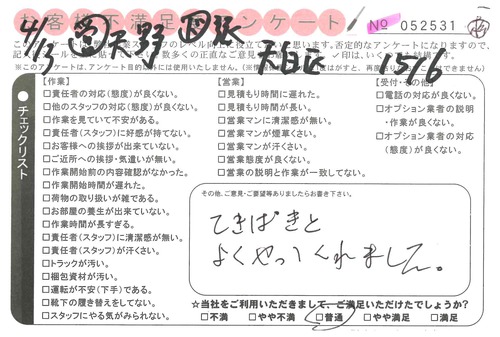 お客様不満足アンケート
No 052531
4/3 天野 1516
【作業】
□責任者の対応(態度)が良くない。
□他のスタッフの対応(態度)が良くない。
□作業を見ていて不安がある。
□責任者(スタッフ)に好感が持てない。
□お客様への挨拶が出来ていない。
□ご近所への挨拶・気遣いが無い。
□作業開始前の内容確認がなかった。
□作業開始時間が遅れた。
□荷物の取り扱いが雑である。
□お部屋の養生が出来ていない。
□作業時間が長すぎる。
□責任者(スタッフ)に清潔感が無い。
□責任者(スタッフ)が汗くさい。
□トラックが汚い。
□梱包資材が汚い。
□運転が不安(下手)である。
□靴下の履き替えをしてない。
□スタッフにやる気がみられない。
【営業】
□見積もり時間に遅れた。
□見積もり時間が長い。
□営業マンに清潔感が無い。
□営業マンが煙草くさい。
□営業マンが汗くさい。
□営業態度が良くない。
□営業の説明と作業が一致してない。
【受付・その他】
□電話の対応が良くない。
□オプション業者の説明
・作業が良くない。
□オプション業者の対応
(態度)が良くない。
チェックリスト
その他、ご意見・ご要望等ありましたらお書き下さい。
てきぱきと
よくやってくれました。
☆当社をご利用いただきまして、ご満足いただけたでしょうか?
□不満 □やや不満 □普通 □やや満足 □満足